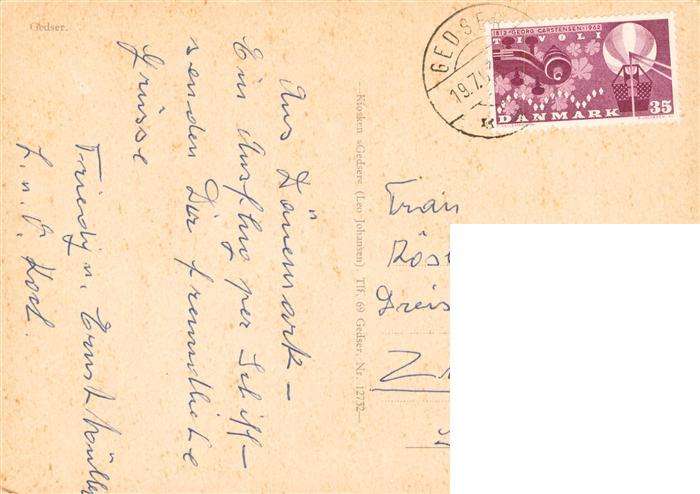 Gedser.
GEDSER
19.7.
1812 · GEORG CARSTENSEN · 1962
TIVOLI
35
DANMARK
Aus Dänemark –
Ein Ausflug per Schiff –
senden Dir freundliche
Grüsse
Friedy u. Ernst Müller
L. u. O. Koch
—Kiosken »Gedser« (Leo Johansen) Tlf. 69 Gedser. Nr. 12752—
Frau